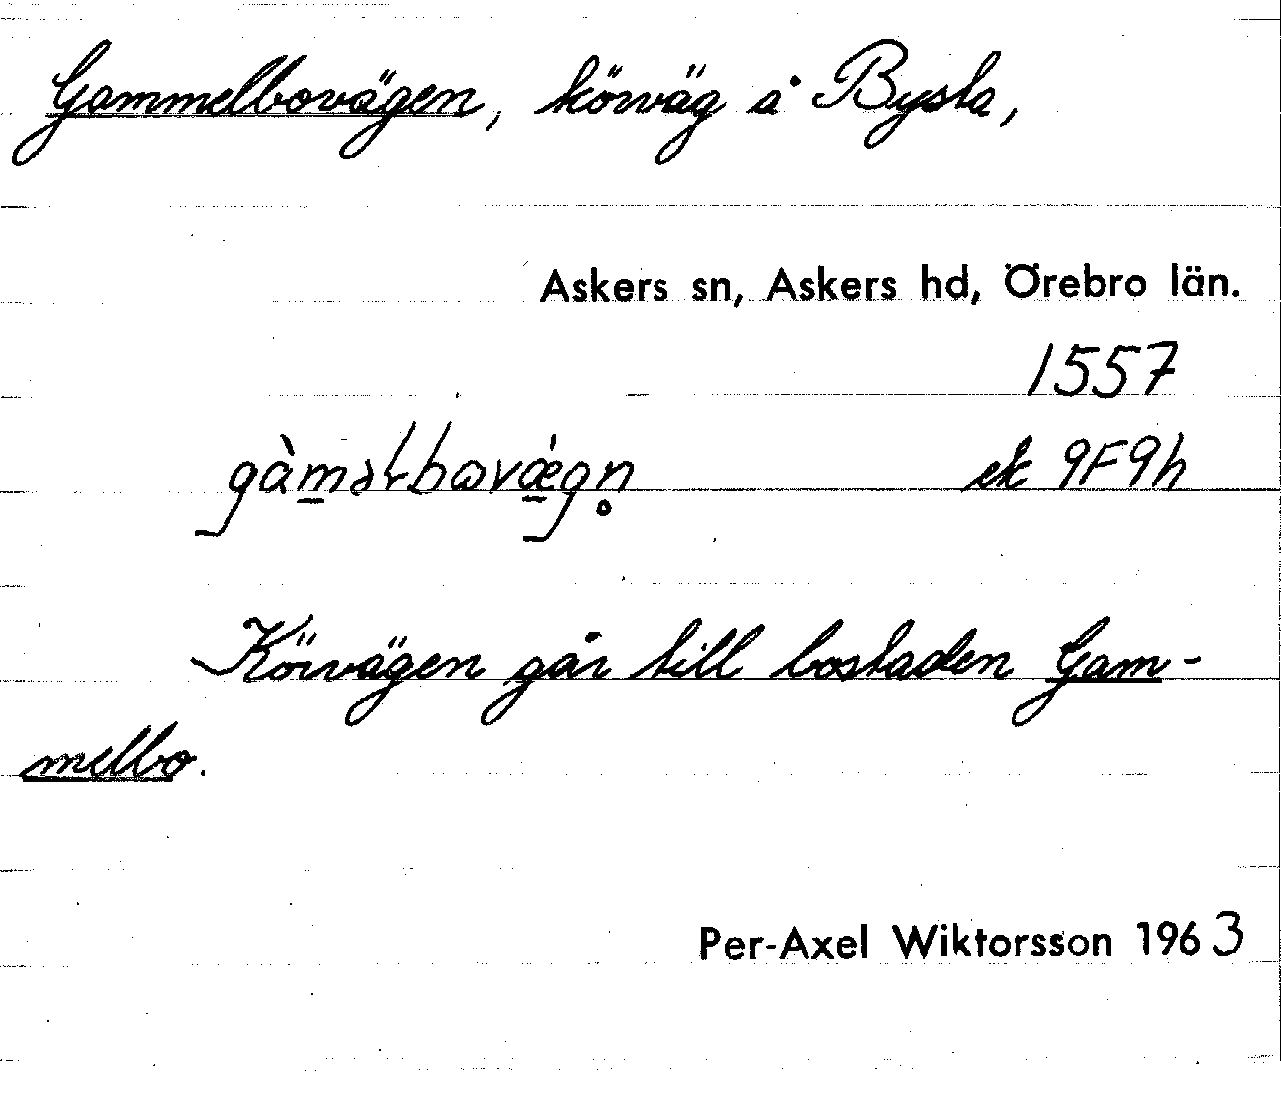 Gammelbovägen, körväg å Bysta,
Askers sn, Askers hd, Örebro län.
1557
gàm̲əɫbωvǽ̲gn̥
ek 9F9h
Körvägen går till bostaden Gam-
melbo.
Per-Axel Wiktorsson 1963